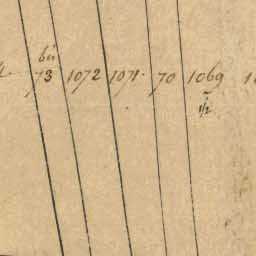 bei
73 1072 1071. 70 1069
1/2